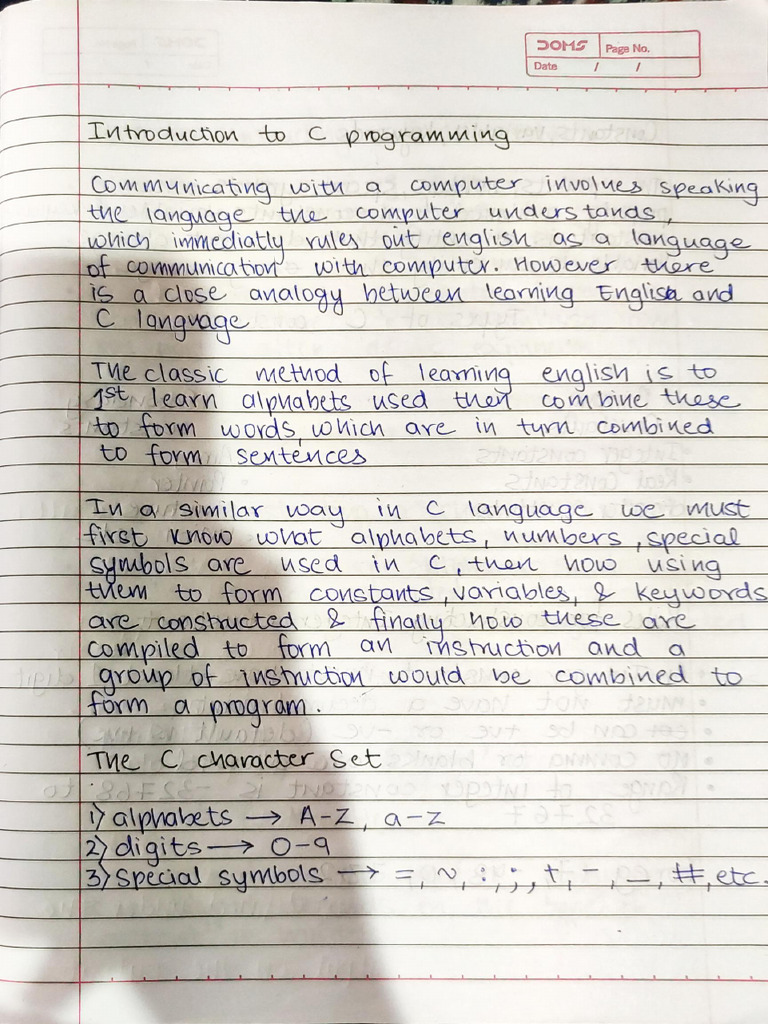 DOMS Page No.
Date / /
Introduction to C programming
Communicating with a computer involves speaking
the language the computer understands,
which immediatly rules out english as a language
of communication with computer. However there
is a close analogy between learning English and
C language
The classic method of learning english is to
1st learn alphabets used then combine these
to form words, which are in turn combined
to form sentences
In a similar way in C language we must
first know what alphabets, numbers, special
symbols are used in C, then how using
them to form constants, variables, & keywords
are constructed & finally how these are
compiled to form an instruction and a
group of instruction would be combined to
form a program.
The C character Set
1) alphabets → A-Z, a-z
2) digits → 0-9
3) Special symbols → =, ~, :, ;, +, -, _, #, etc.